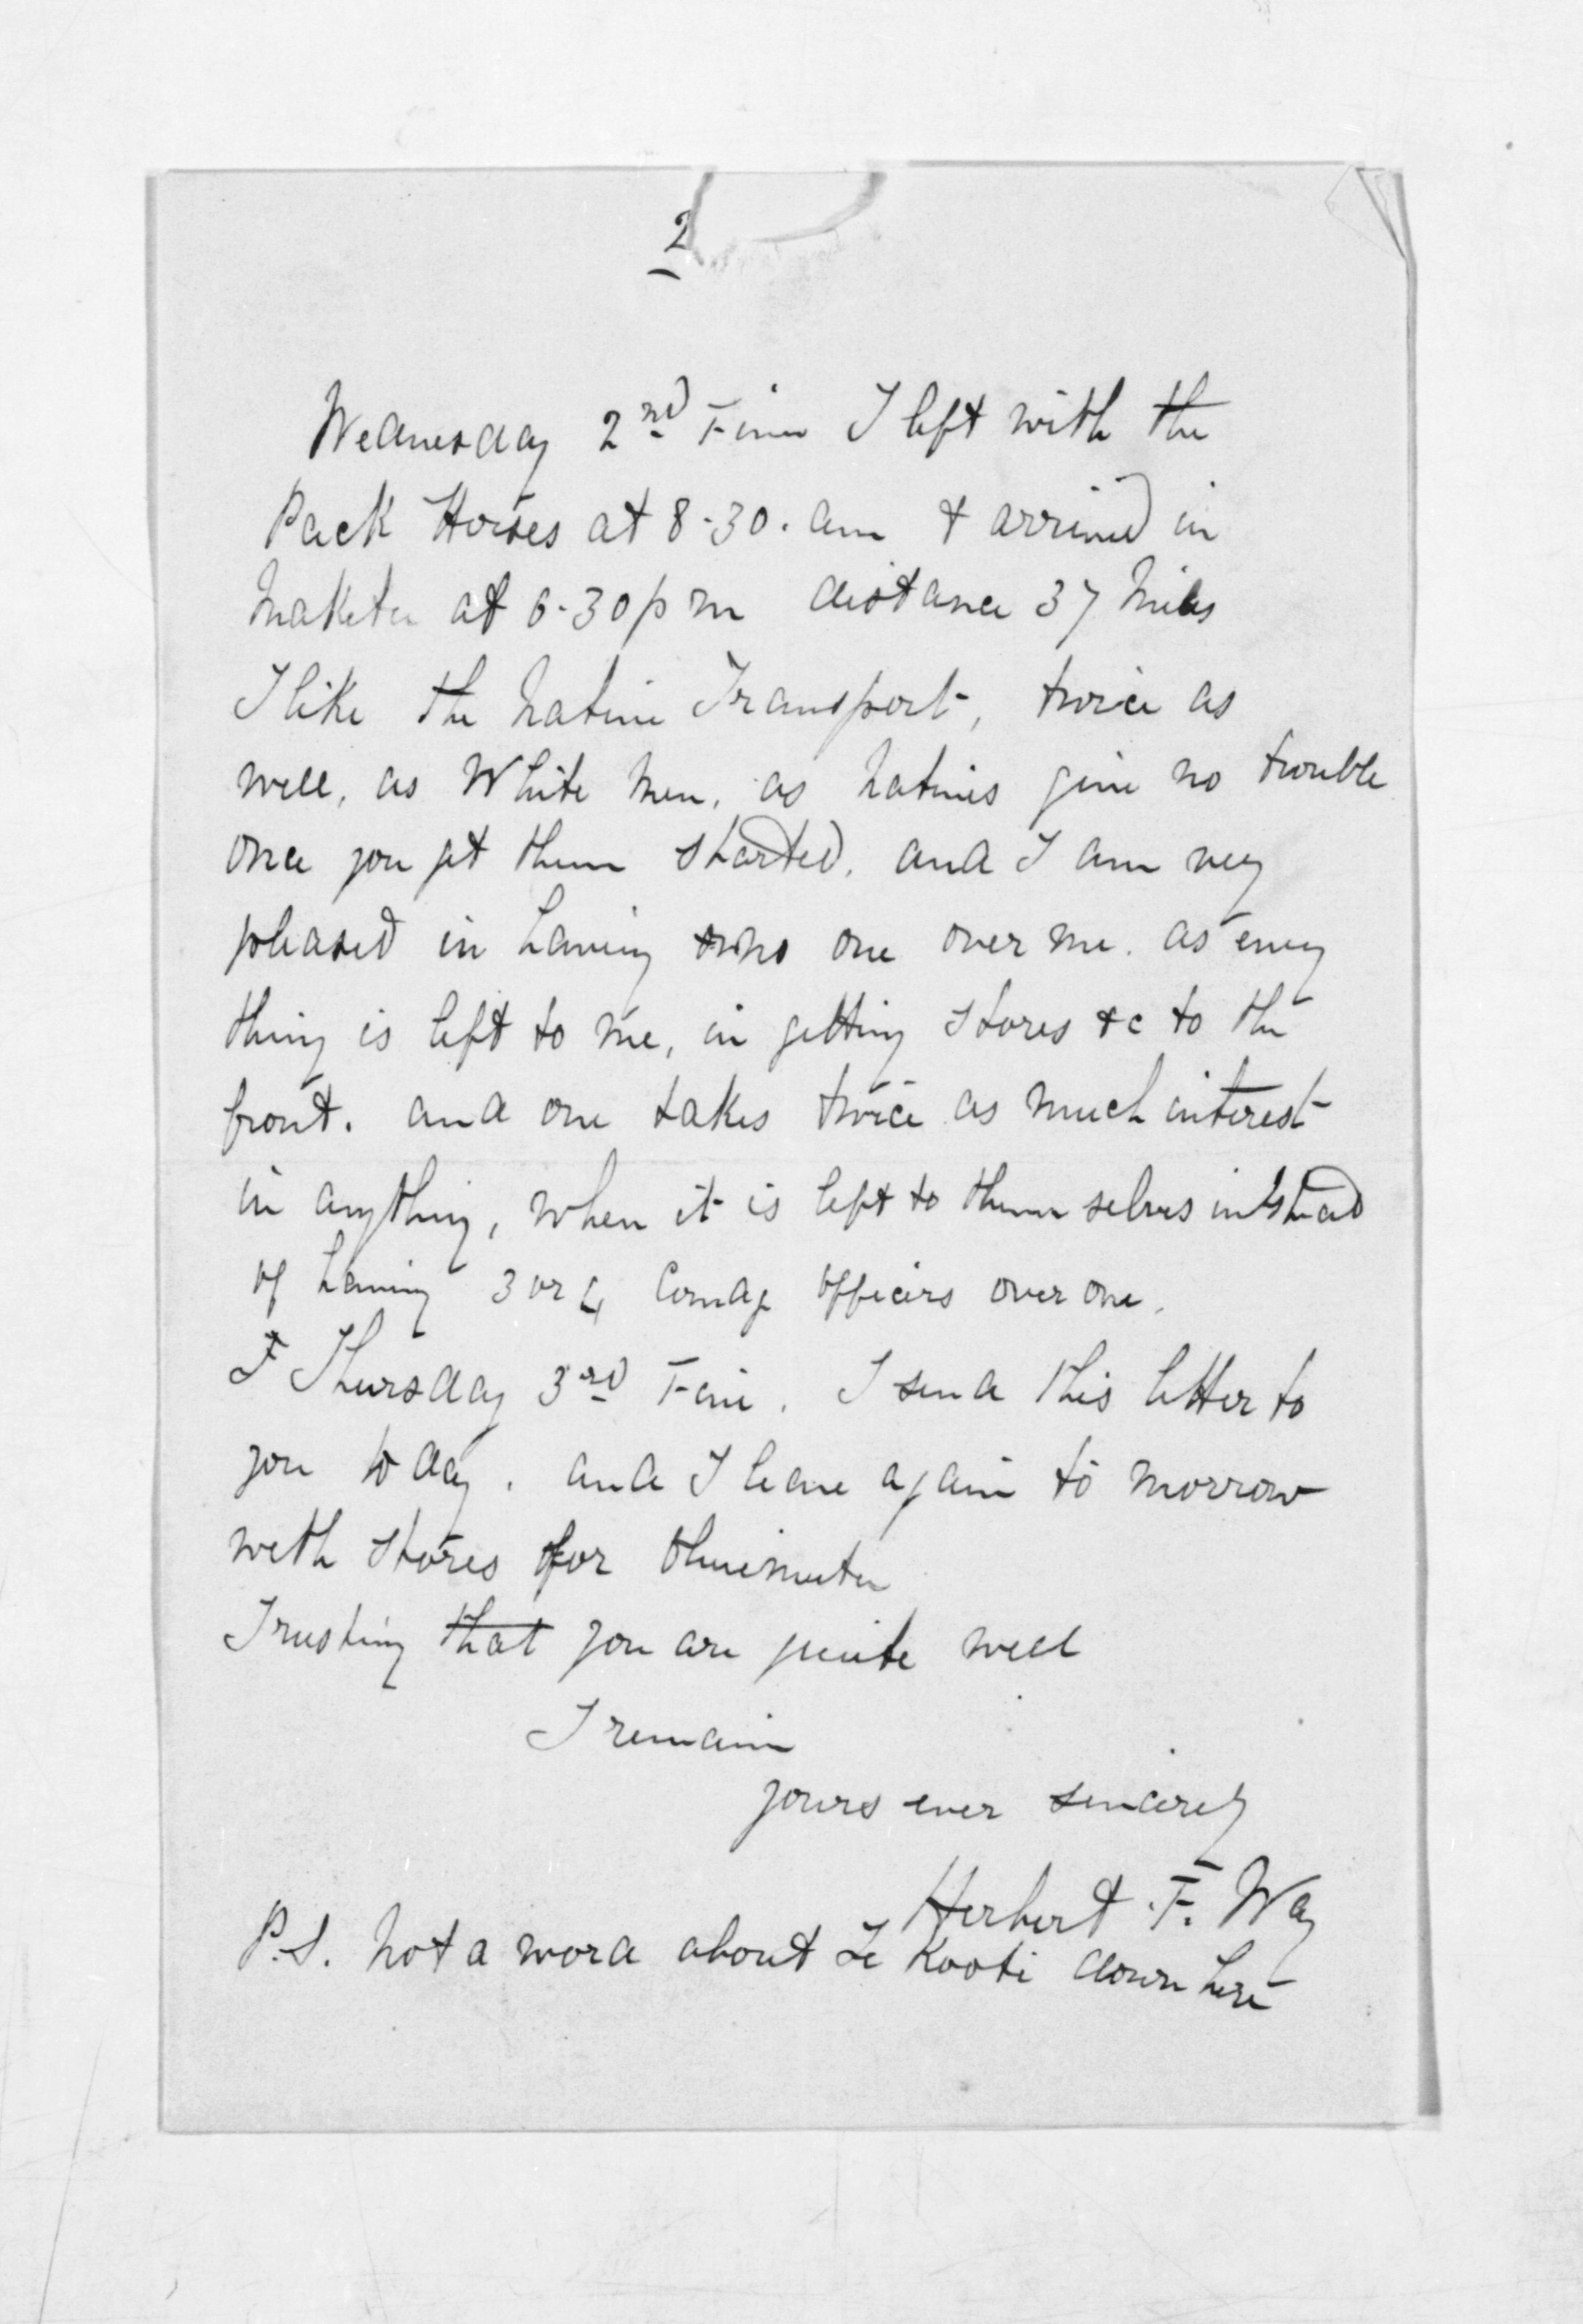 2
Wednesday 2nd Fine I left with the
Pack Horses at 8.30. am & arrived in
Maketu at 6.30 p m distance 37 Miles
I like the Native Transport, twice as
well, as White Men, as Natives give no trouble
once you get them started, and I am very
pleased in having no one over me. as every
thing is left to me, in getting stores &c to the
front. and one takes twice as much interest
in anything, when it is left to themselves instead
of having 3 or 4 Comdg officers over one.
Thursday 3rd Fine. I send this letter to
you to day. and I leave again to morrow
with stores for Ohinemutu
Trusting that you are quite well
I remain
yours ever sincerely
Herbert F. Way
P.S. Not a word about Te Kooti down here